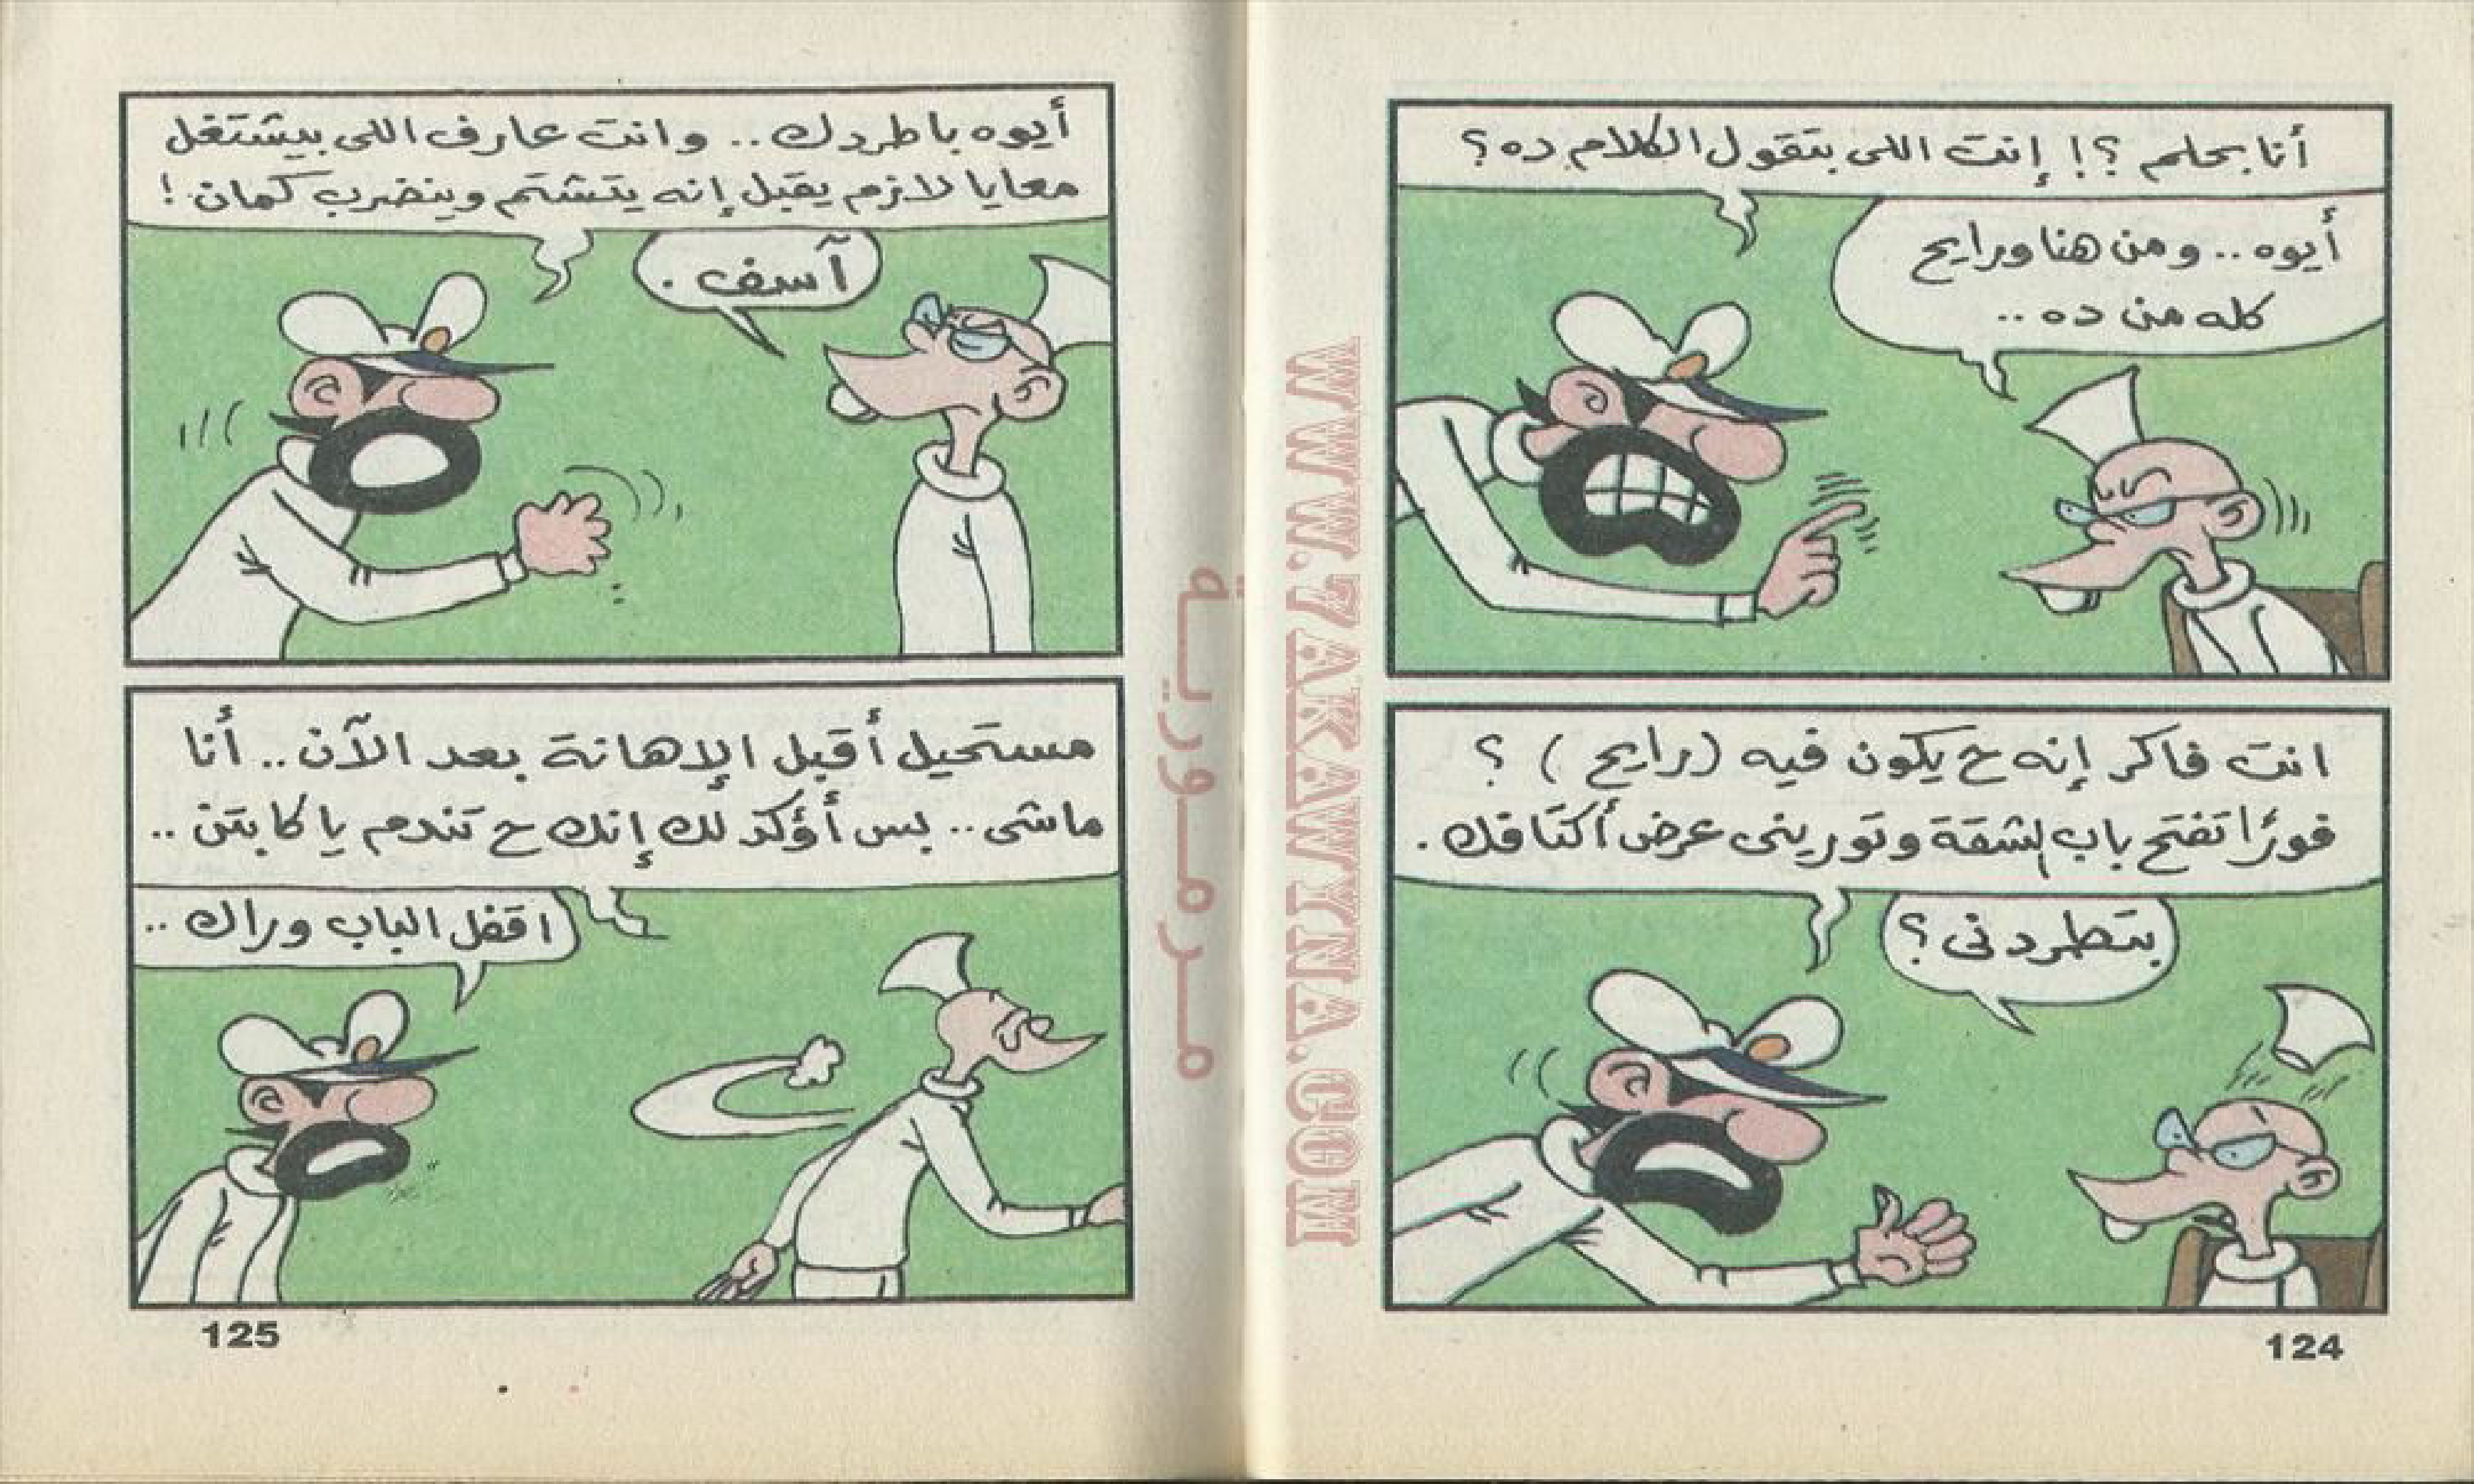 أنا بحلم ؟! إنت اللى بتقول الكلام ده؟
أيوه .. ومن هنا ورايح
كله من ده ..
انت فاكر إنه ح يكون فيه (رايح) ؟
فورًا تفتح باب الشقة وتورينى عرض أكتافك .
بتطردنى؟
124
أيوه باطردك .. وانت عارف اللى بيشتغل
معايا لازم يقبل إنه يتشتم وينضرب كمان !
آسف .
مستحيل أقبل الإهانة بعد الآن .. أنا
ماشى .. بس أؤكد لك إنك ح تندم يا كابتن ..
اقفل الباب وراك ..
125
مرمورية
WWW.7AKAWYNA.COM